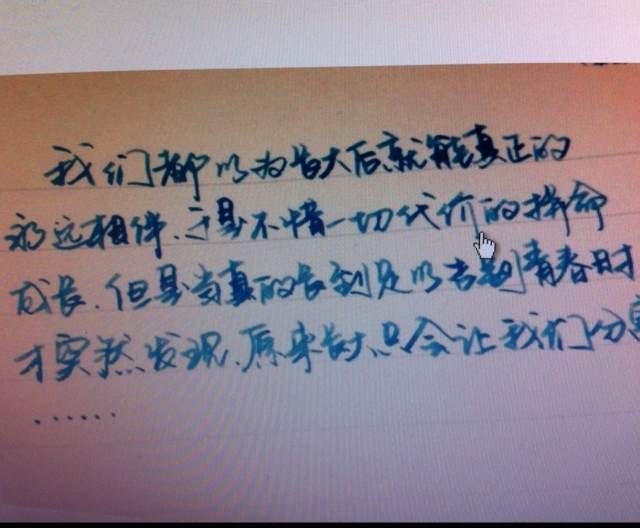 我们都以为长大后,就能真正的
永远相伴.于是不惜一切代价的拼命
成长.但是当真的长到足以告别青春时
才突然发现.原来长大.只会让我们分
......